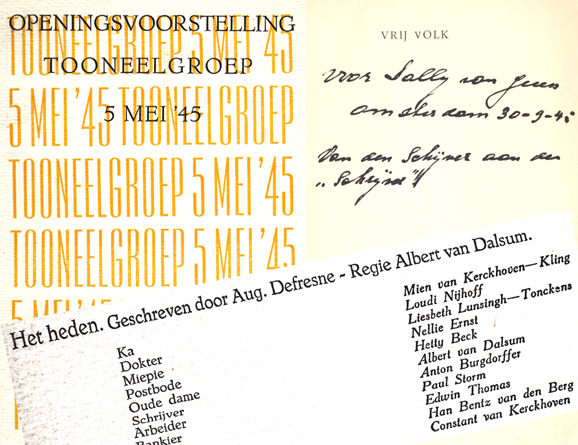 OPENINGSVOORSTELLING
TOONEELGROEP
5 MEI '45
TOONEELGROEP 5 MEI '45
5 MEI '45 TOONEELGROEP
TOONEELGROEP 5 MEI '45
TOONEELGROEP 5 MEI '45
5 MEI '45
VRIJ VOLK
Voor Sally van
Amsterdam 30-9-45
Van den Schijver aan den
"Schrijver"!
Het heden. Geschreven door Aug. Defresne - Regie Albert van Dalsum.
Ka
Dokter
Miepie
Postbode
Oude dame
Schrijver
Arbeider
Bankier
Mien van Kerckhoven—Kling
Loudi Nijhoff
Liesbeth Lunsingh—Tonckens
Nellie Ernst
Hetty Beck
Albert van Dalsum
Anton Burgdorffer
Paul Storm
Edwin Thomas
Han Bentz van den Berg
Constant van Kerckhoven